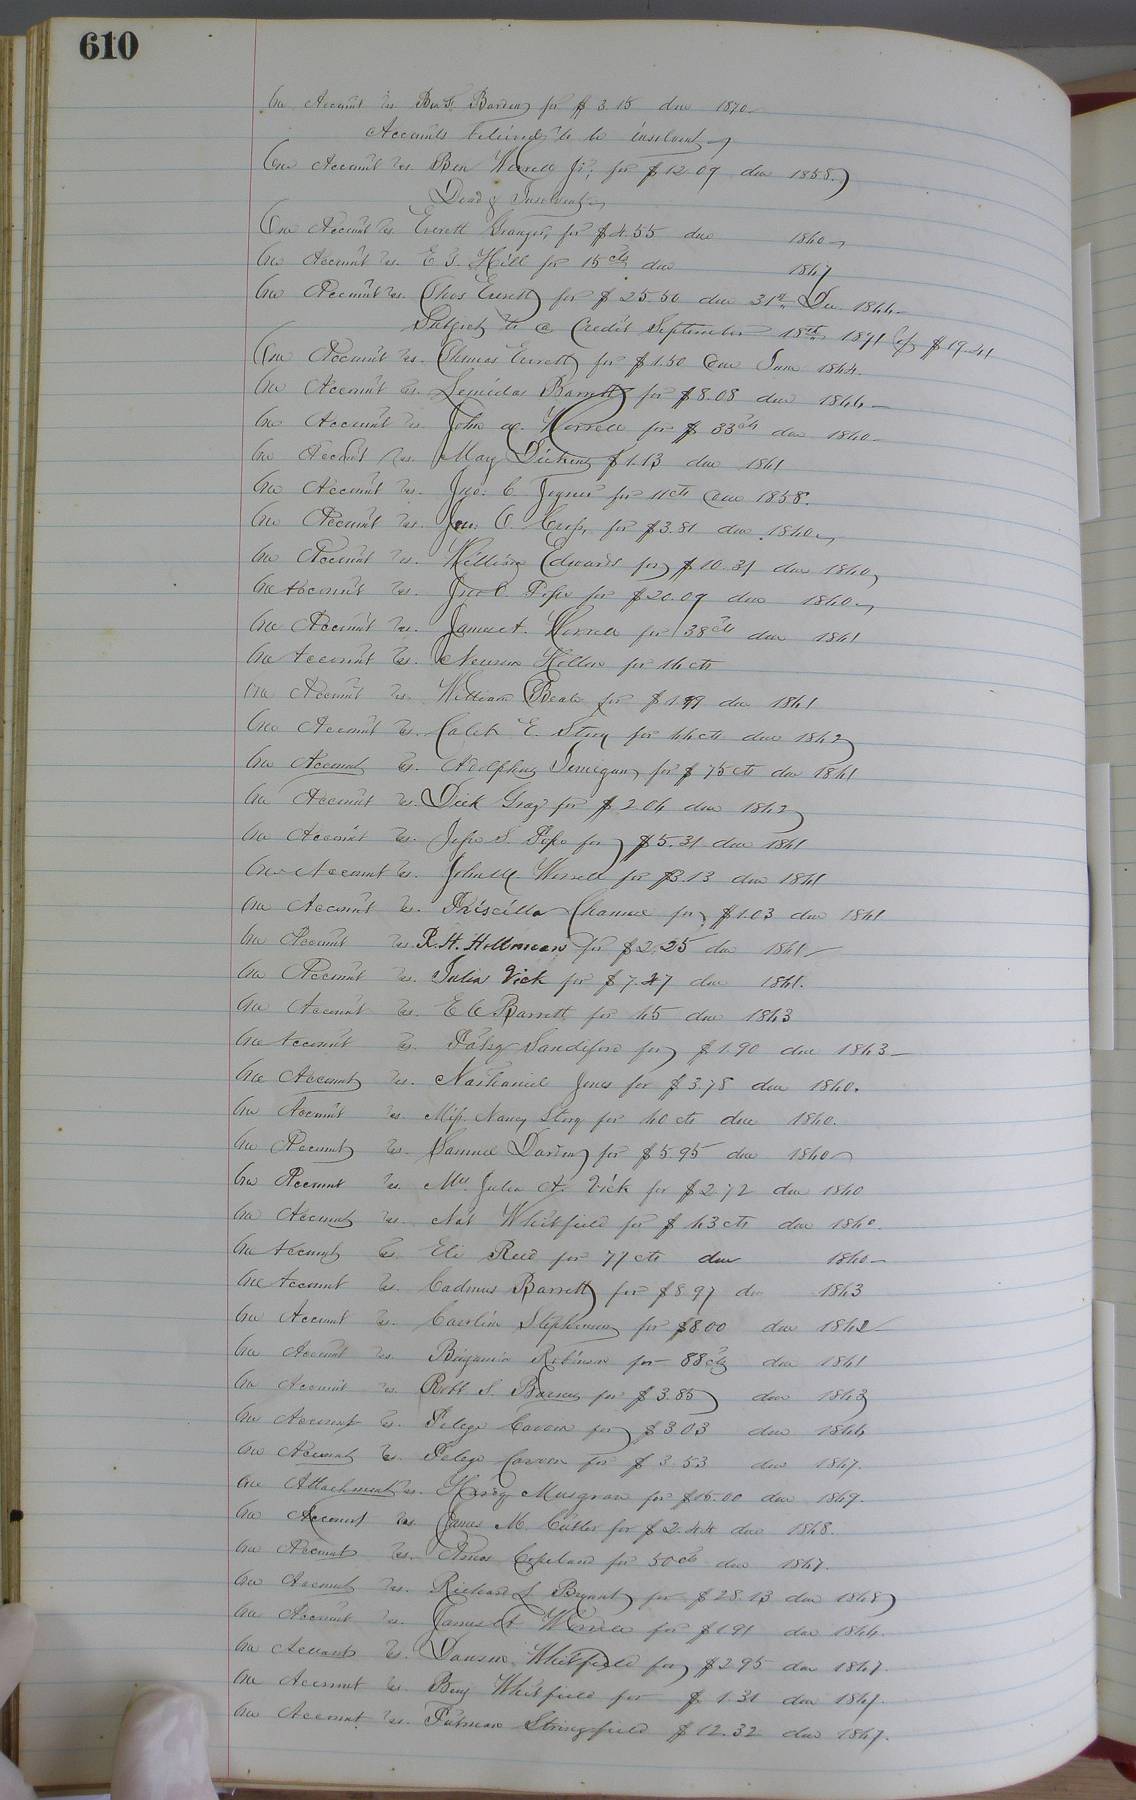 610
One Account vs. Ben F. Barden for $3.15 due 1870
Accounts believed to be insolvent
One Account vs. Ben Worrell Jr. for $12.09 due 1858
Dead & Insolvent
One Account vs. Everett Granger, for $4.55 due 1860
One Account vs. E. J. Hill for 15 cts due 1867
One Account vs. Thos Everett for $25.50 due 31st Dec 1866
Subject to a Credit September 18th 1871 of $19.41
One Account vs. Thomas Everett for $1.50 Due June 1864.
One Account vs. Leonidas Barrett for $8.08 due 1866
One Account vs. John W. Worrell for $33 cts due 1860
One Account vs. May Dickens $1.13 due 1861
One Account vs. Jno. C. for 11 cts due 1858.
One Account vs. Jno. C. for $3.81 due 1860
One Account vs. William Edwards for $10.31 due 1860
One Account vs. Jno. C. Pope for $20.09 due 1860
One Account vs. James A. Worrell for 38 cts due 1861
One Account vs. Newsom for 16 cts
One Account vs. William Beale for $1.99 due 1861
One Account vs. Caleb E. Story for 44 cts due 1862
One Account vs. Adolphus Jernigan for $75 cts due 1861
One Account vs. Dick Gray for $2.06 due 1862
One Account vs. Jesse S. Pope for $5.31 due 1861
One Account vs. John W. Worrell for $3.13 due 1861
One Account vs. Priscilla Channel for $1.03 due 1861
One Account vs. R. H. Holloman for $2.25 due 1861
One Account vs. Julia Vick for $7.47 due 1861.
One Account vs. E C Barrett for 45 due 1863
One Account vs. Patsy Sandiford for $1.90 due 1863
One Account vs. Nathaniel Jones for $3.78 due 1860.
One Account vs. Miss. Nancy Story for 40 cts due 1860.
One Account vs. Samuel Darden for $5.95 due 1860
One Account vs. Mrs. Julia A. Vick for $2.72 due 1860
One Account vs. Nat Whitfield for $43 cts due 1860.
One Account vs. Eli Reed for 77 cts due 1860
One Account vs. Cadmus Barrett for $8.97 due 1863
One Account vs. Caroline Stephenson for $8.00 due 1862
One Account vs. Benjamin Robinson for 88 cts due 1861
One Account vs. Robt S. Barnes for $3.85 due 1863
One Account vs. Pelege Carson for $3.03 due 1866
One Account vs. Pelege Carson for $3.53 due 1867.
One Attachment vs. Henry Musgrave for $15.00 due 1869.
One Account vs. James M. Cutler for $2.44 due 1868.
One Account vs. Amos Copeland for 50 cts due 1867.
One Account vs. Richard L Bryant for $28.13 due 1868
One Account vs. James A Worrell for $1.91 due 1866.
One Account vs. Dawson Whitfield for $2.95 due 1867.
One Account vs. Benj Whitfield for $1.31 due 1867.
One Account vs. Putman Stringfield $12.32 due 1867.